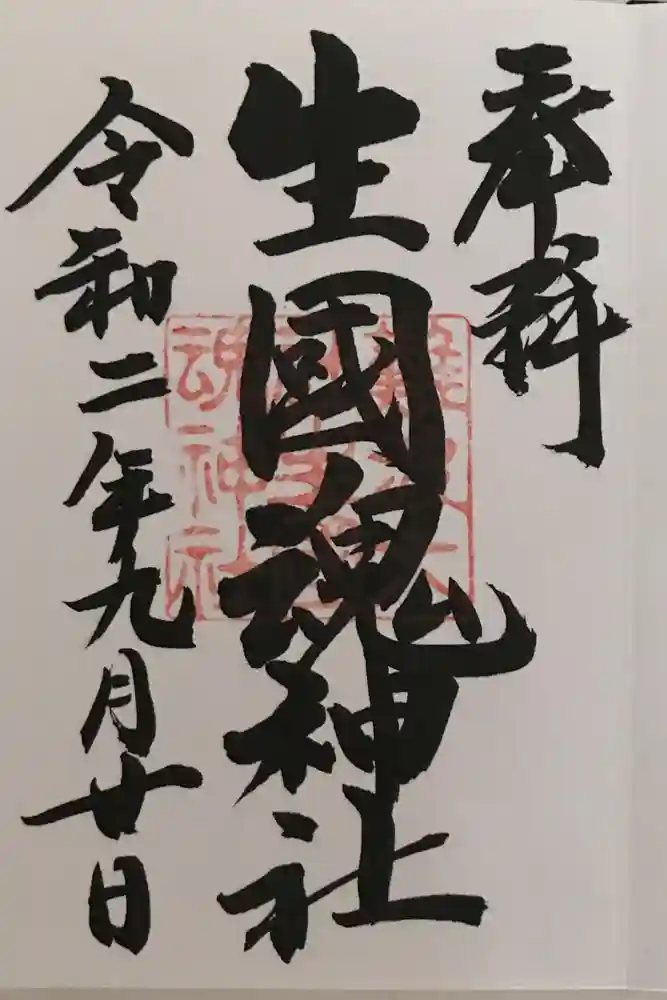 奉拝
生國魂神社
令和二年九月廿日